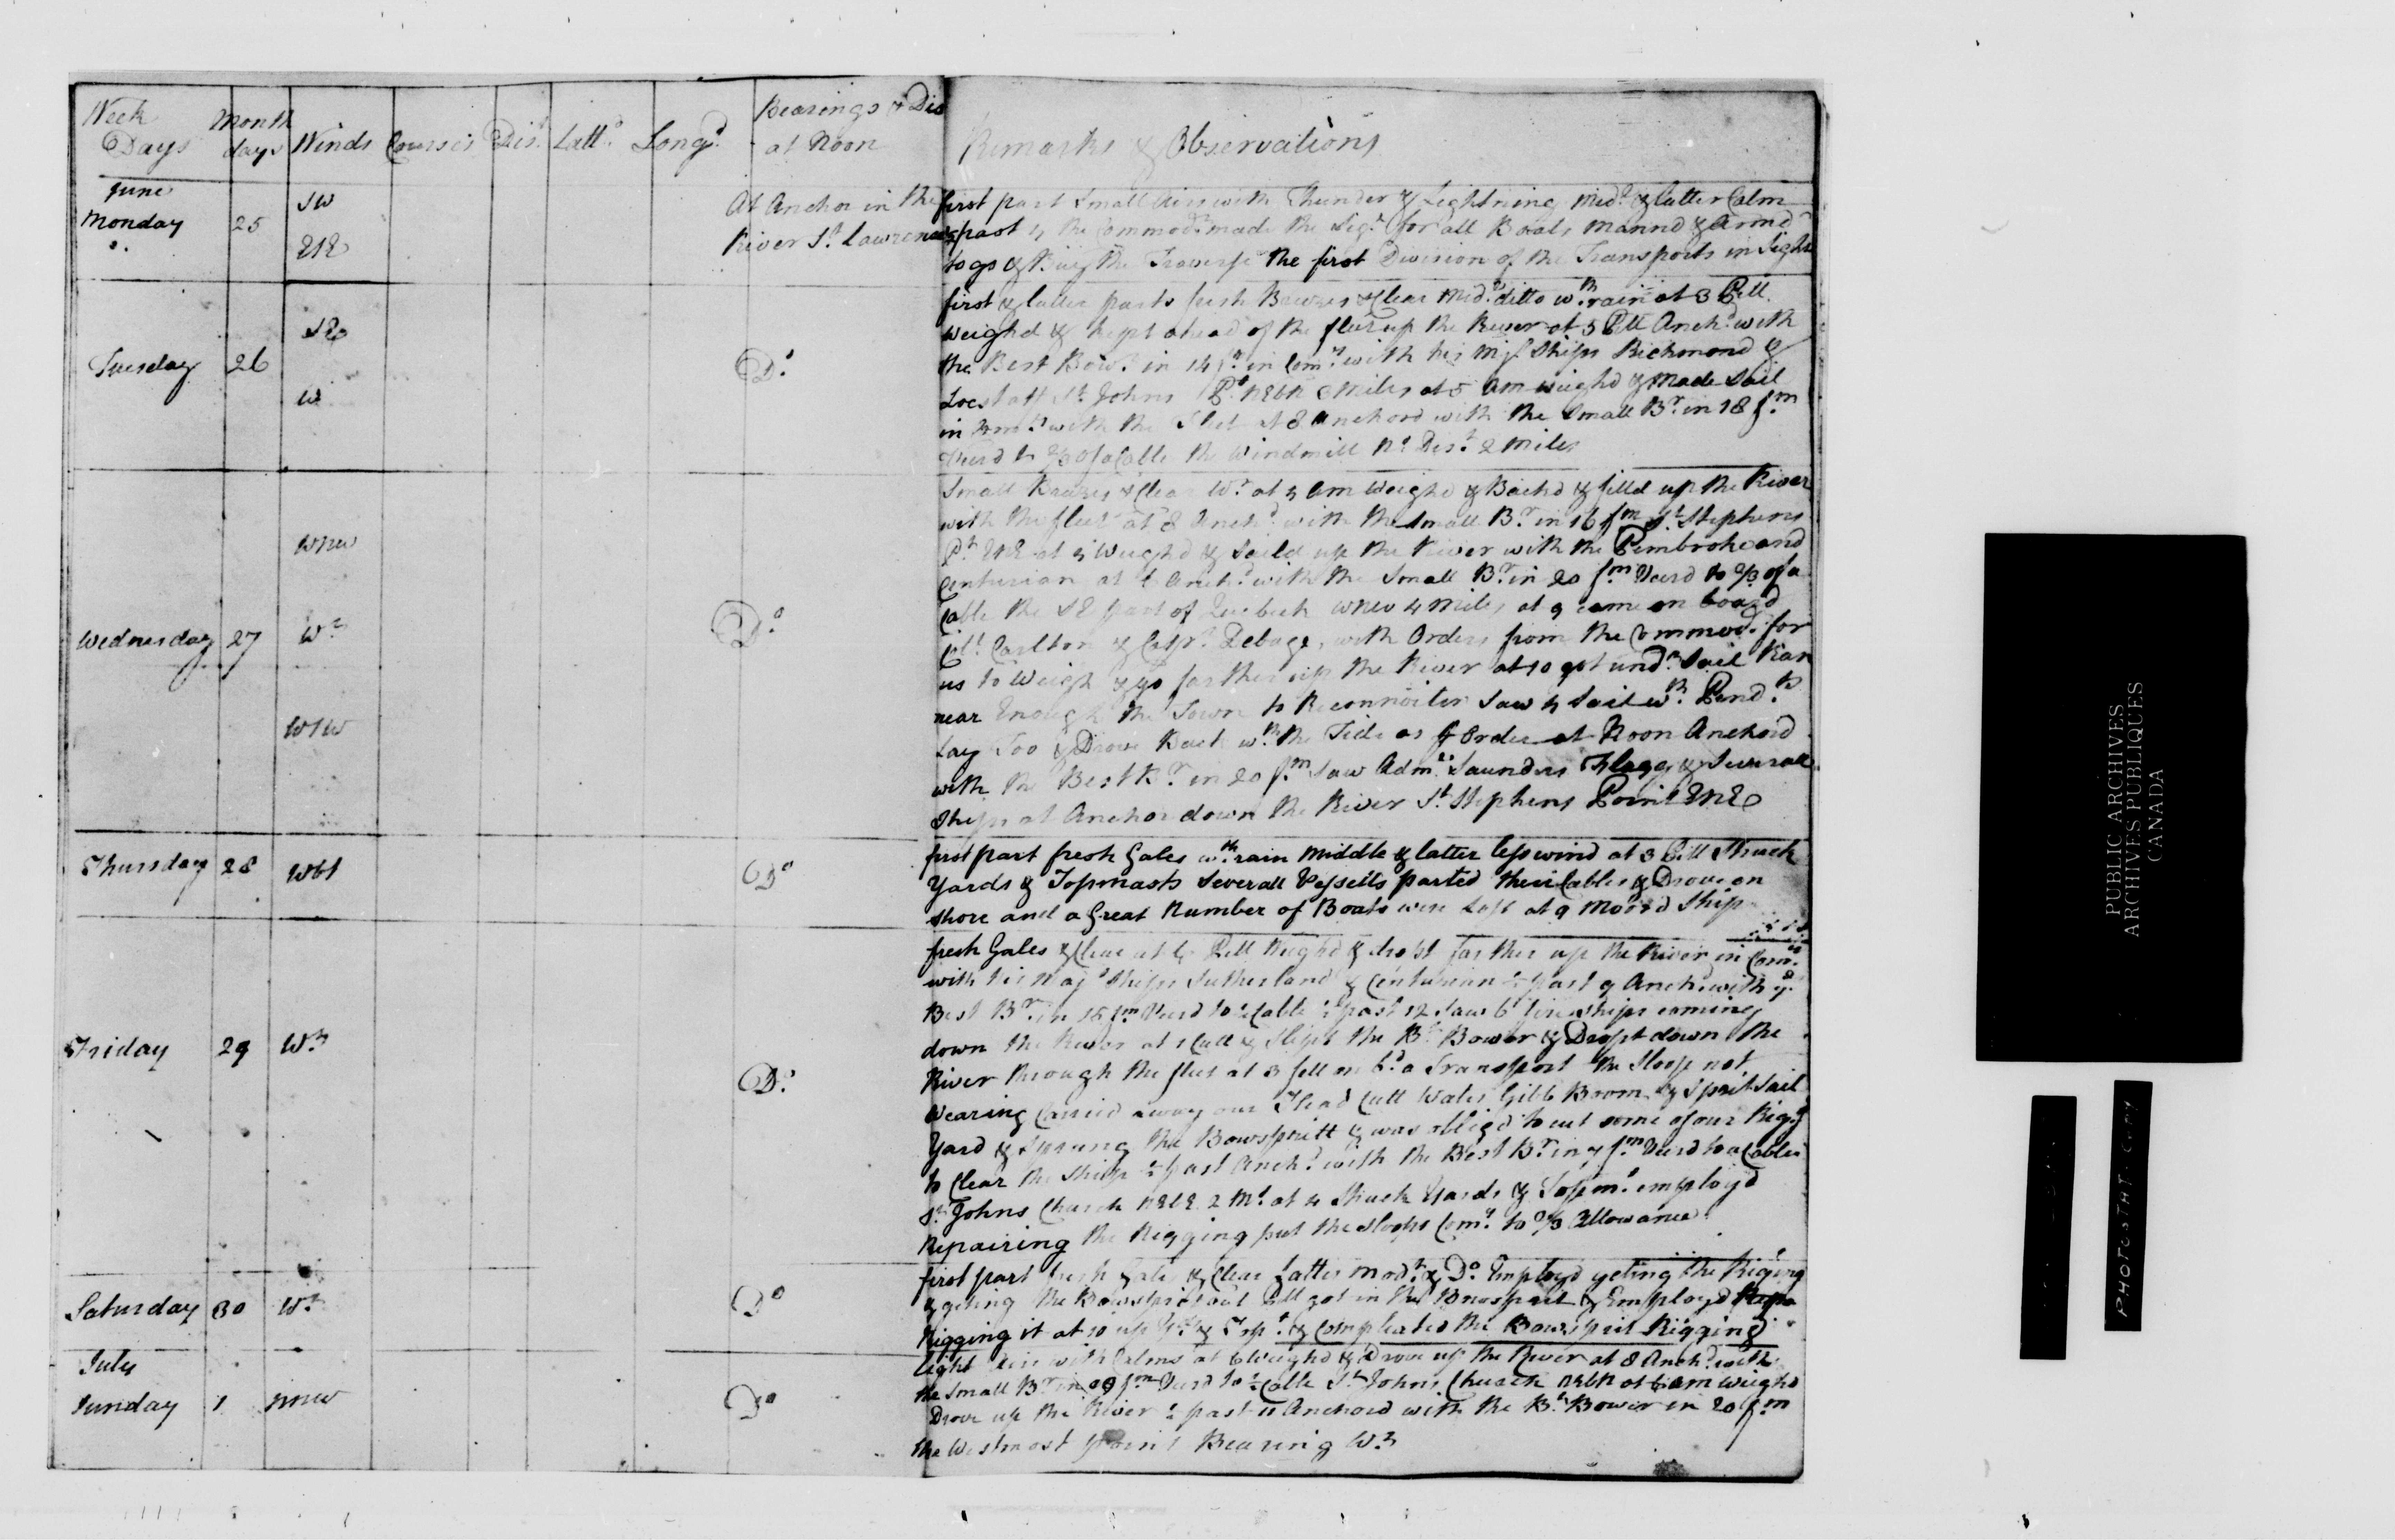 Week Days Month days Winds Courses Dist Lattd Longd Bearings & Dis at Noon Remarks & Observations
June Monday 25 SW ENE At Anchor in the River St Lawrence
first part Small Airs with Thunder & Lightning Midd & latter Calm
past 4 the Commodr made the Sigl for all Boats Mannd & Armd
to go & Buoy the Traverse the first Division of the Transports in Sight
Tuesday 26 SE W Do
first & latter parts fresh Breezes & Clear Midd ditto wth rain at 3 PM
Weighd & kept ahead of the fleet up the River at 5 PM Anchd with
the Best Bowr in 14 fm in Comy with his Mjs Ships Richmond &
off St Johns Pt NEbN Miles at 5 AM weighd & made Sail
in Comy with the Fleet at 8 Anchord with the Small Br in 18 fm
Veerd to 2/3 of a Cable the Windmill No Dist 2 Miles
Wednesday 27 WNW Wt WSW Do
Small Breezes & Clear Wr at 4 AM Weighd & Backd & filld up the River
with the fleet at 8 Anchd with the Small Br in 16 fm St Stephens
Pt ENE at Weighd & Saild up the River with the Pembroke and
Centurian at 6 Anchd with the Small Br in 20 fm Veerd to 2/3 of a
Cable the SE part of Quebeck WNW 4 Miles at 9 came on board
Coll Carlton & Capt Debage, with Orders from the Commodr for
us to Weigh & go farther up the River at 10 got undr Sail Ran
near Enough the Town to Reconnoiter Saw 4 Sail wth Pendts
Lay Too & Drove Back wth the Tide as Order at Noon Anchord
with the Best Br in 20 fm Saw Admls Saunders Flagg & Severall
Ships at Anchor down the River St Stephens Point ENE
Thursday 28 WbS Do
first part fresh Gales wth rain Middle & latter less wind at 3 PM Struck
Yards & Topmasts Severall Vessells parted their Cables & Drove on
shore and a Great Number of Boats were Lost at 9 Moord Ship
Friday 29 Wt Do
fresh Gales & Clear at 6 PM Weighd & dropt farther up the River in Comy
with his Majs Ships Sutherland & Centurian 1/2 past 9 Anchd with ye
Best Br in 15 fm Veerd to 1/2 Cable 1/2 past 12 Saw 6 fire ships coming
down the River at 1 Cutt & Slipt the Bt Bower & Dropt down the
River through the fleet at 3 fell on bd a Transport the Sloop not
Wearing Carried away our Head Cutt Water Gibb Boom & Sprit Sail
Yard & Sprung the Bowspritt & was obligd to cut some of our Rigg
to Clear the Ship 1/2 past Anchd with the Best Br in 7 fm Veerd to a Cable
St Johns Church NEbE 2 Ms at 4 Struck Yards & Topms employd
Repairing the Rigging put the Sloops Comy to 2/3 Allowance
Saturday 30 Wt Do
first part fresh Gales & Clear Latter Modt & Do Employd geting the Riging
& geting the Bowsprit out PM got in the Bowsprit & Employd
Rigging it at 10 up & & Compleated the Bowsprit Rigging
July Sunday 1 NNW Do
light Airs with Calms at 6 Weighd & Drove up the River at 8 Anchd with
the Small Br in fm Veerd to 1/2 Cable St Johns Church NEbN at 6 AM Weighd
Drove up the River 1/2 past 11 Anchord with the Bt Bower in 20 fm
the Westmost Point Bearing Wt
PUBLIC ARCHIVES
ARCHIVES PUBLIQUES
CANADA
PHOTOSTAT COPY